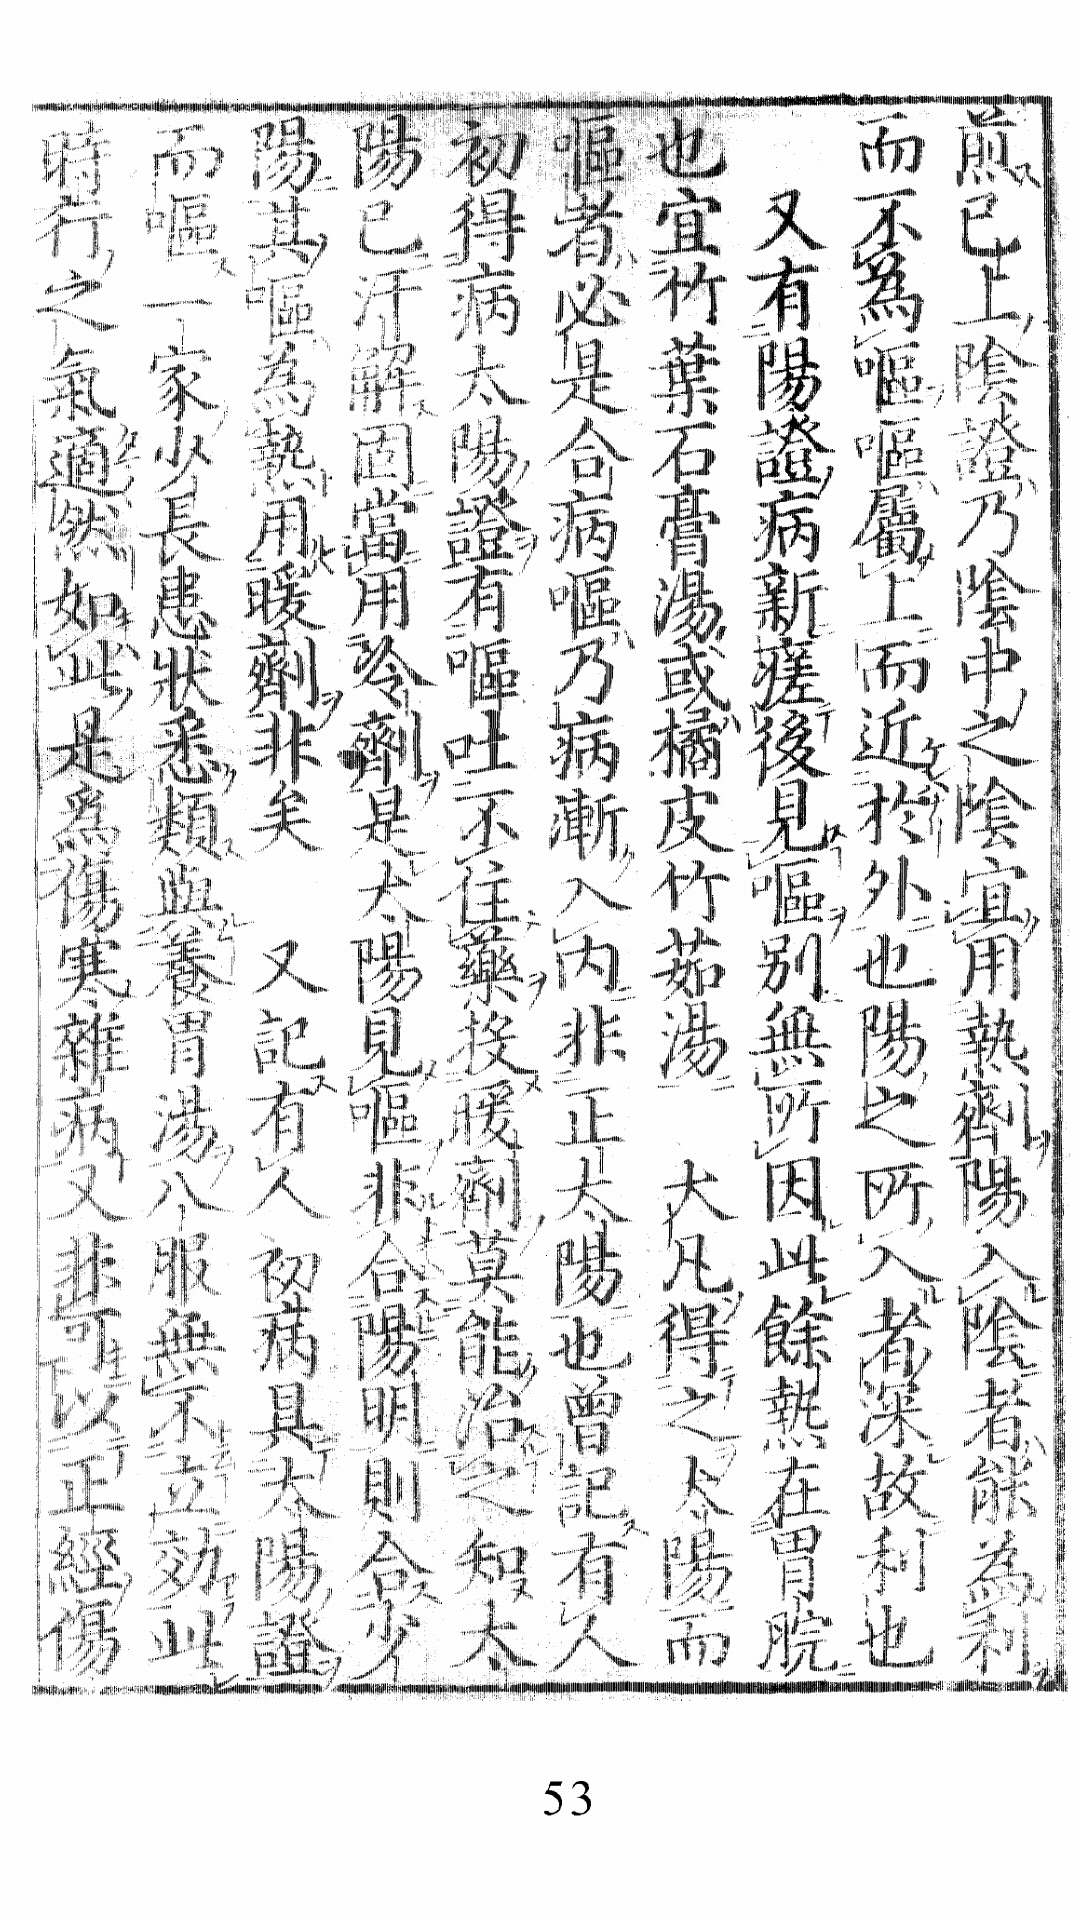 煎已上陰證乃陰中之陰宜用熱劑陽入陰者能為利
而不為嘔嘔屬上而近於外也陽之所入者深故利也
又有陽證病新瘥後見嘔別無所因此餘熱在胃脘
也宜竹葉石膏湯或橘皮竹茹湯 大凡得之太陽而
嘔者必是合病嘔乃病漸入內非正太陽也曾記有人
初得病太陽證有嘔吐不住藥投暖劑莫能治之知太
陽已汗解固當用冷劑是太陽見嘔非合陽明則合少
陽其嘔為熱用暖劑非矣 又記有人初病具太陽證
而嘔一家少長患狀悉類與養胃湯八服無不立効此
時行之氣適然如此是為傷寒雜病又非可以正經傷
53